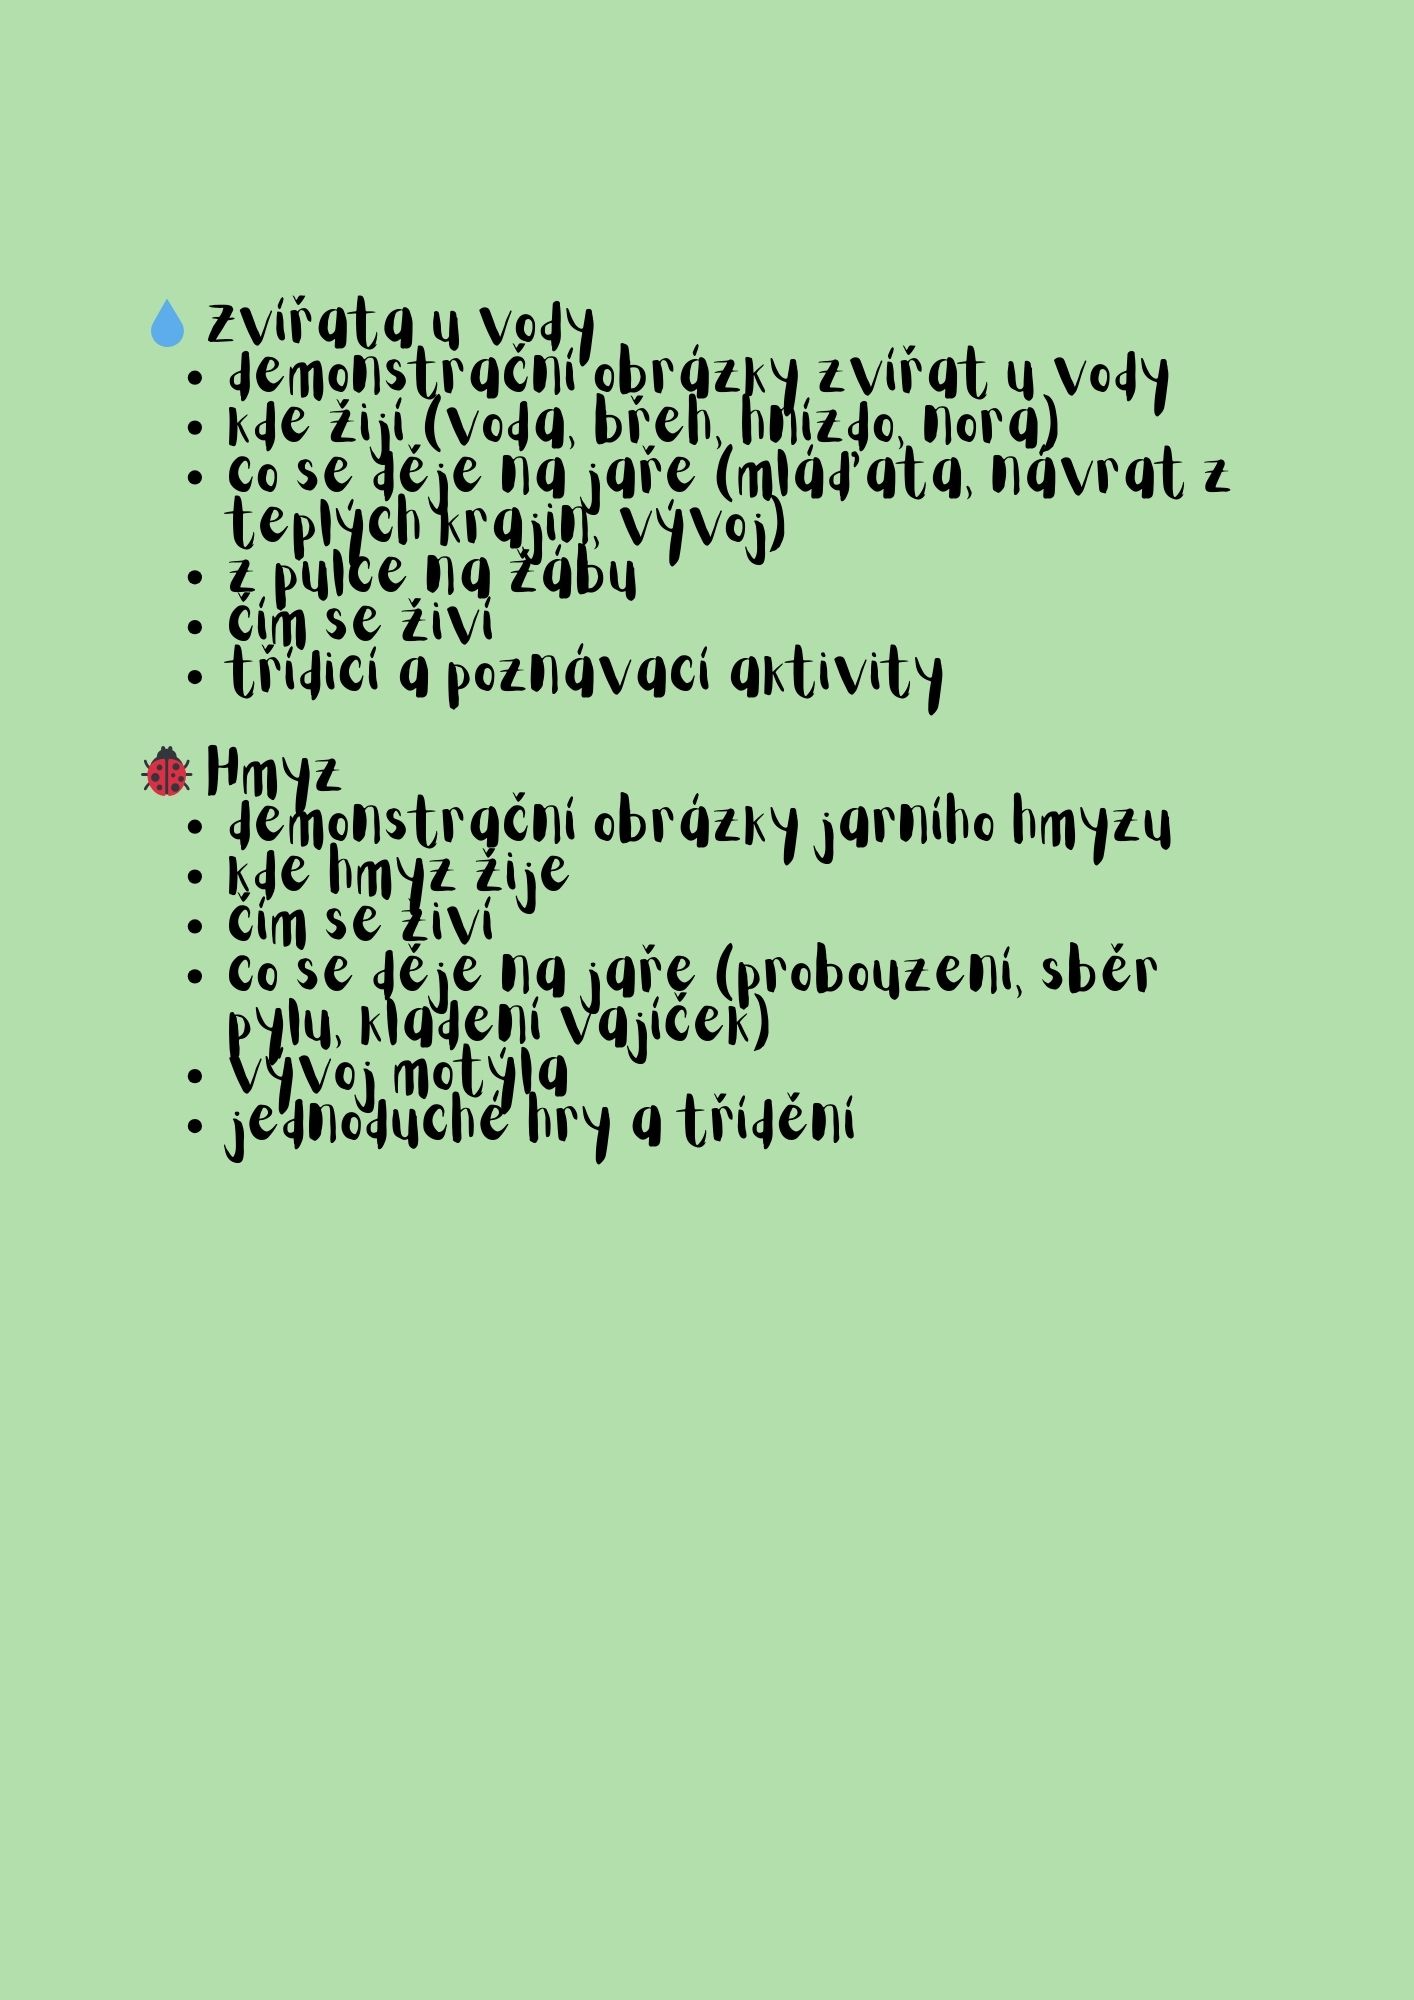 💧 Zvířata u vody
• demonstrační obrázky zvířat u vody
• kde žijí (voda, břeh, hnízdo, nora)
• co se děje na jaře (mláďata, návrat z
teplých krajin, vývoj)
• z pulce na žábu
• čím se živí
• třídicí a poznávací aktivity
🐞 Hmyz
• demonstrační obrázky jarního hmyzu
• kde hmyz žije
• čím se živí
• co se děje na jaře (probouzení, sběr
pylu, kladení vajíček)
• vývoj motýla
• jednoduché hry a třídění